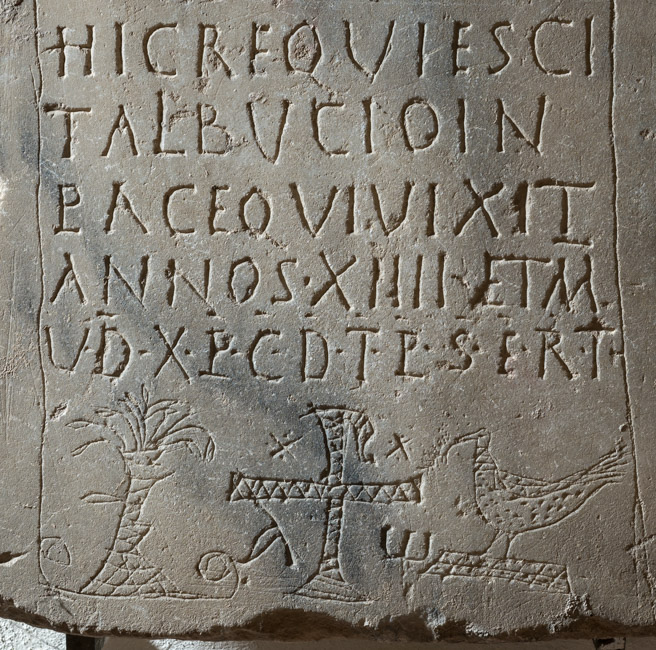 HICREQVIESCI
TALBVCIOIN
PACEQVIVIXIT
ANNOS·XIIII·ETM
VD·X·P·CD·T·P·S·E·R·T·
ω